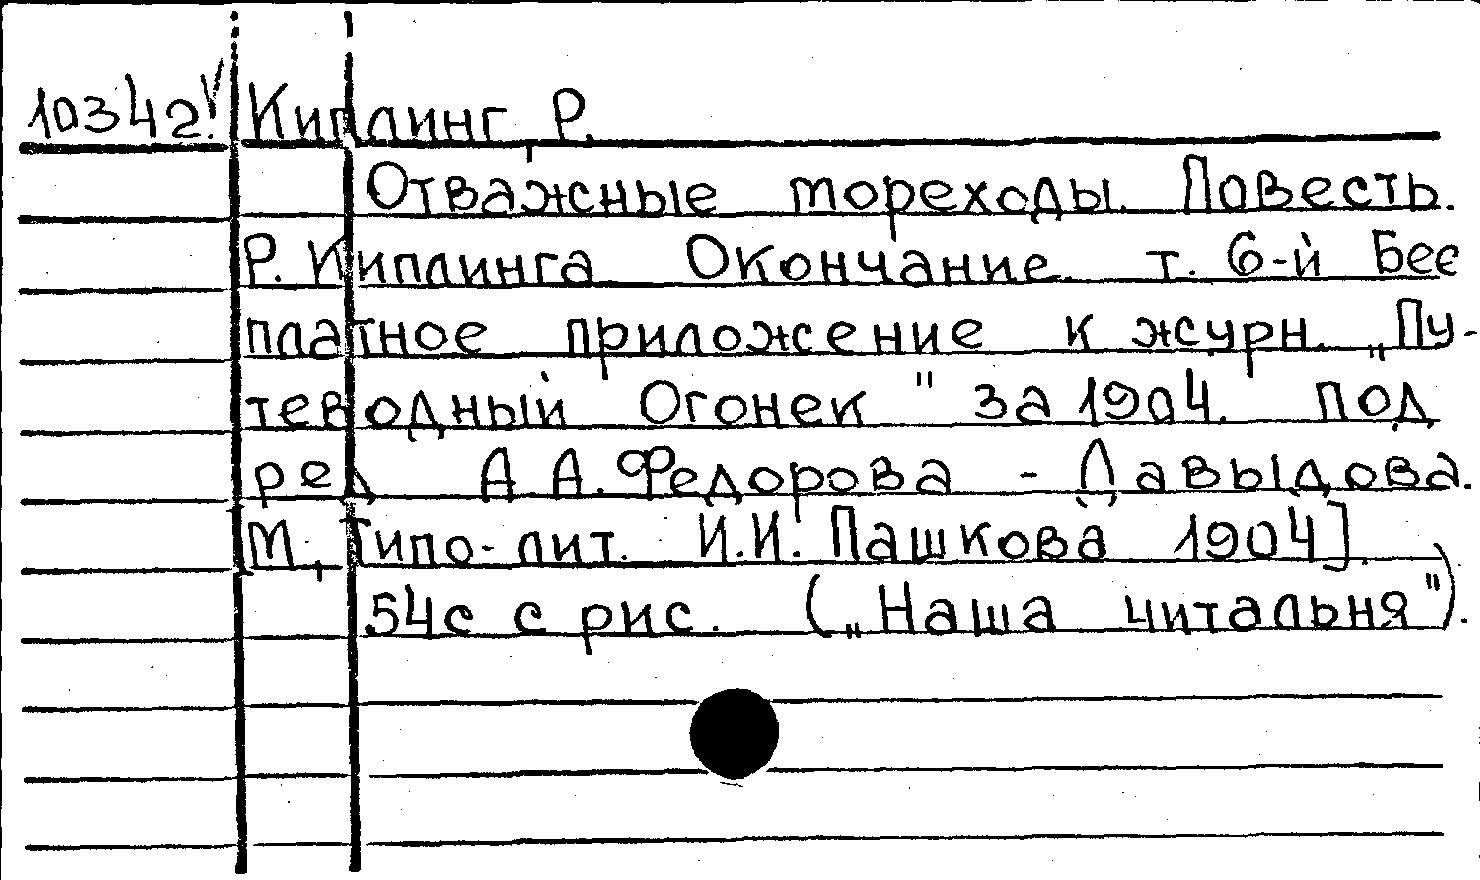 10342. Киплинг, Р.
Отважные мореходы. Повесть.
Р. Киплинга Окончание. т. 6-й Бес
платное приложение к журн. „Пу-
теводный Огонек" за 1904. под
ред. А. А. Федорова - Давыдова.
[М., Типо-лит. И.И. Пашкова 1904].
54с с рис. („Наша читальня").